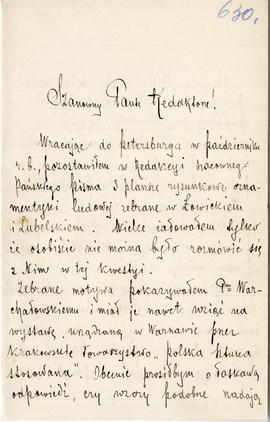 630.
Szanowny Panie Redaktorze!
Wracając do Petersburga w październiku
r.b., pozostawiłem w Redakcyi szacownego
Pańskiego pisma 3 plansze rysunkowe orna-
mentyki ludowej zebrane w Łowickiem
i Lubelskiem. Wielce żałowałem tylko
że osobiście nie można było rozmówić się
z Nim w tej kwestyi.
Zebrane motywa pokazywałem Pnu War-
chałowskiemu i miał je nawet wziąć na
wystawę urządzaną w Warszawie przez
Krakowskie Towarzystwo „polska sztuka
stosowana". Obecnie prosiłbym o łaskawą
odpowiedź, czy wzory podobne nadają